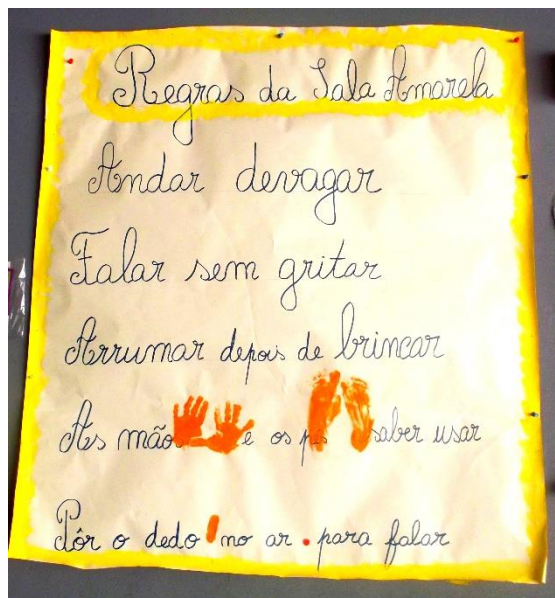 Regras da Sala Amarela
Andar devagar
Falar sem gritar
Arrumar depois de brincar
As mão e os pé saber usar
Pôr o dedo no ar para falar